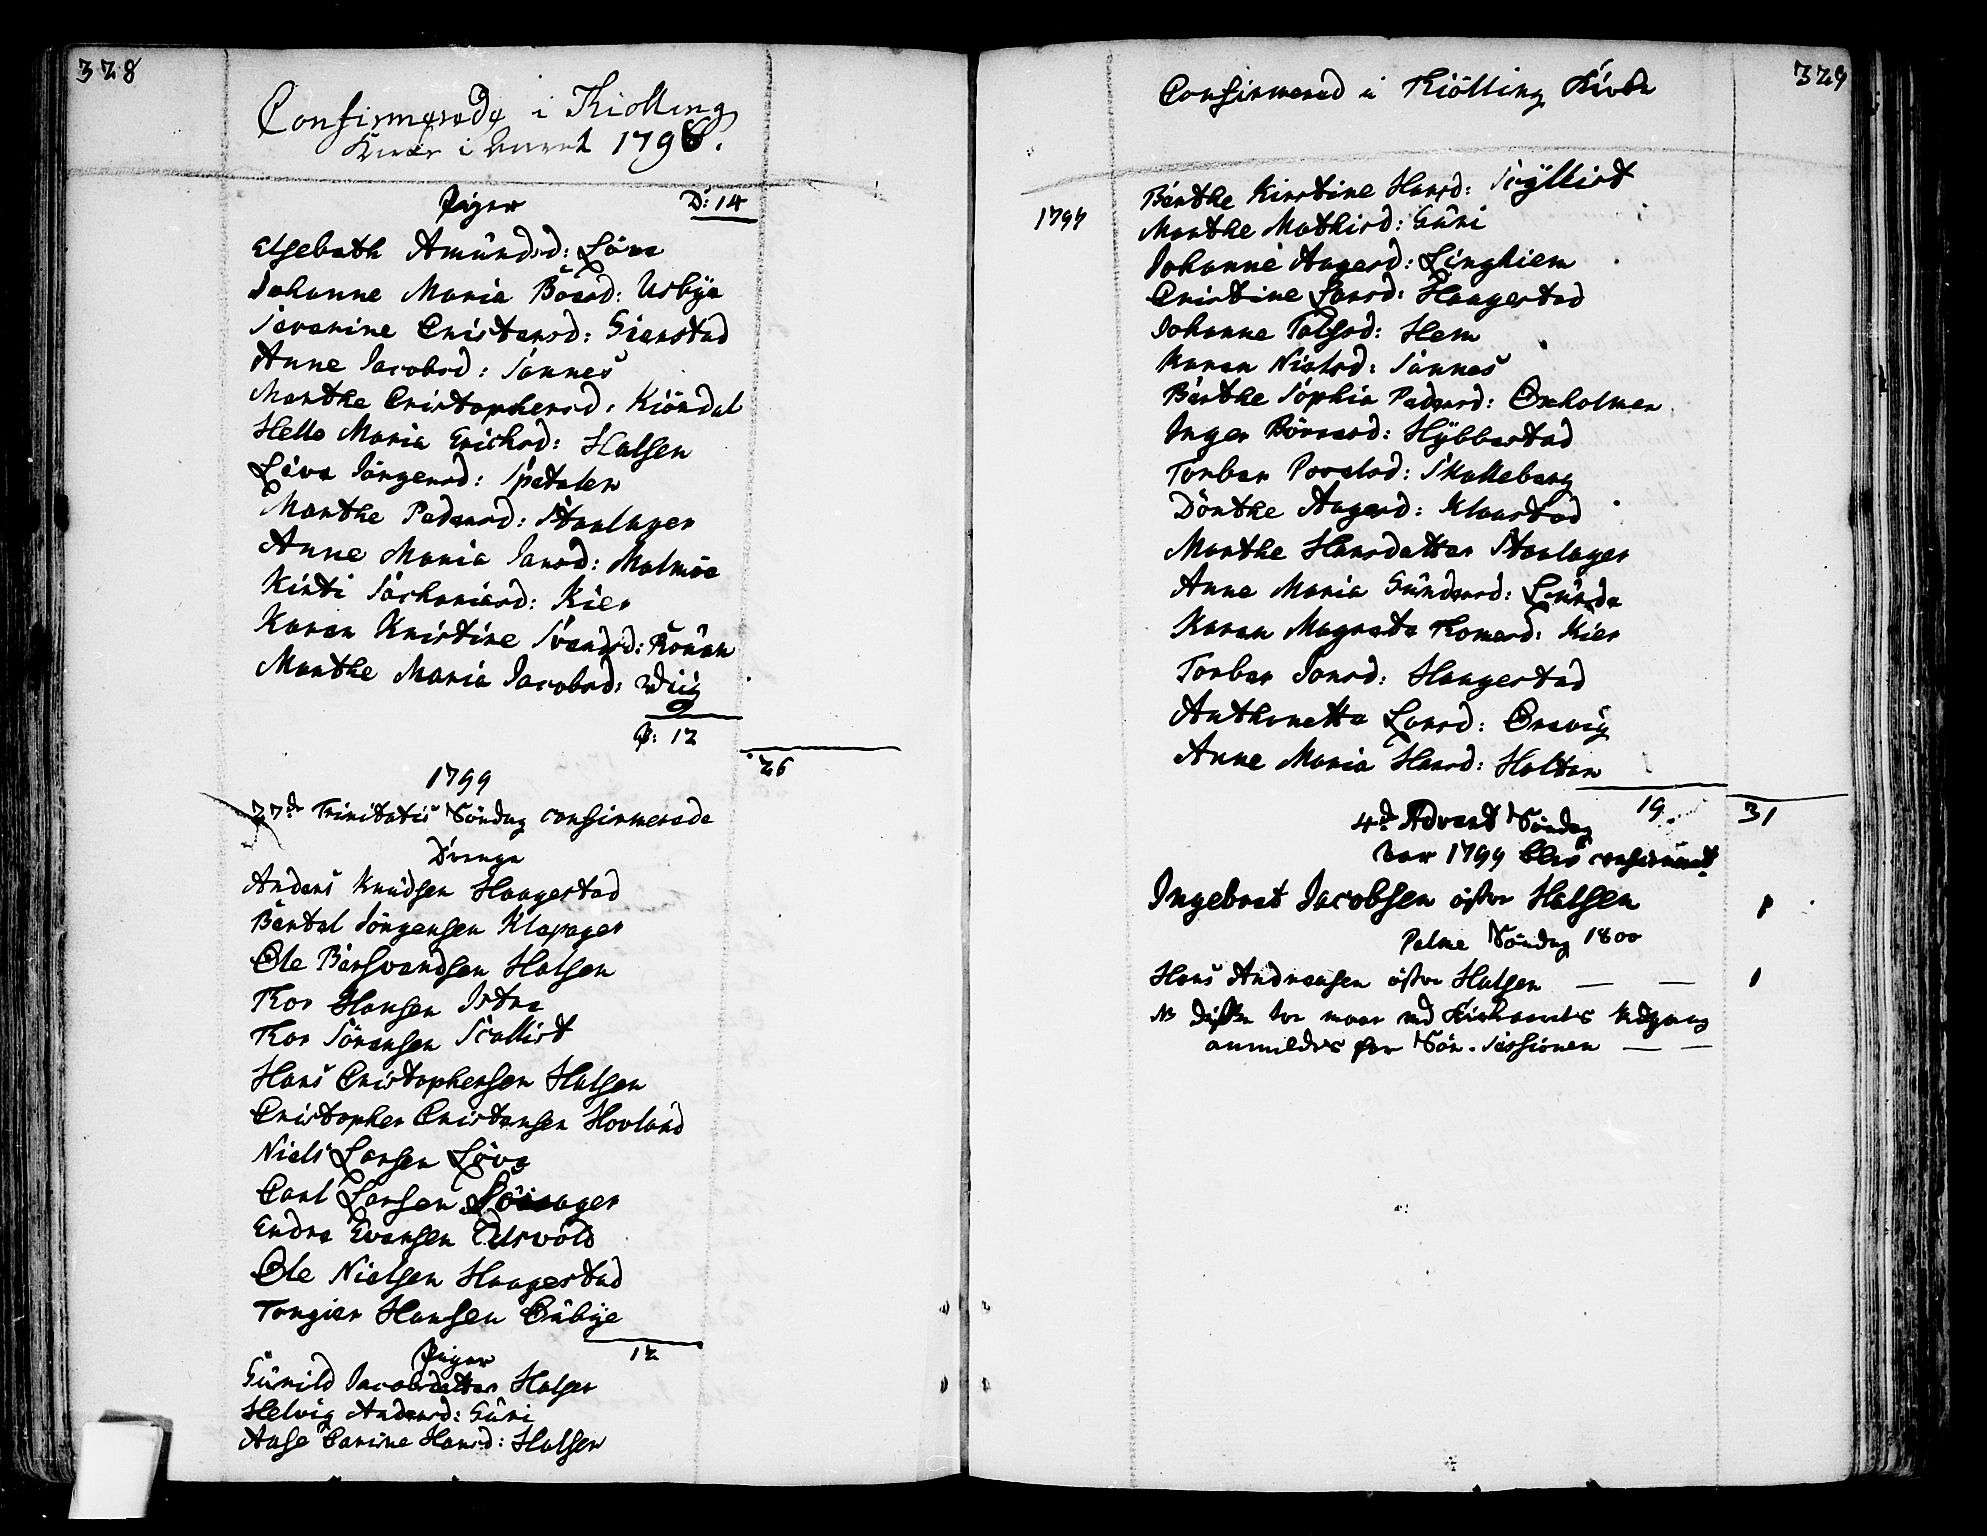 328
Confirmerede i Kiölling
Kirke i Aaret 1798.
Piger D: 14
Elsebeth Amündsd: Löve
Johanne Maria Boesd: Usbÿe
Severine Cristensd: Gierstad
Anne Jacobsd: Sannes
Marthe Cristophersd: Kiöndal
Helle Maria Erichsd: Halsen
Live Jörgensd: Spetalen
Marthe Pedersd: Staulager
Anne Maria Jansd: Malmöe
Kirsti Sachariasd: Kier
Karen Kristine Svendsd: Rönen
Marthe Maria Jacobsd: Wiig
P: 12
26
1799
27de Trinitatis Söndag confirmerede
Drenge
Anders Knudsen Haagestad
Bertel Jörgensen Klepager
Ole Børsvendsen Halsen
Thor Hansen Istre
Thor Sörensen Scallist
Hans Cristophersen Halsen
Cristopher Cristensen Hovland
Niels Larsen Löve
Carl Larsen Löveager
Endre Evensen Eidsvold
Ole Nielsen Haagestad
Torgier Hansen Aubÿe
12
Piger
Günild Jacobsdatter Halsen
Helvig Andersd: Güri
Aase Carine Hansd: Halsen
329
Confirmered i Kiölling Kirke
1799
Berthe Kirstine Hansd: Skÿllist
Marthe Mathisd: Güri
Johanne Aagesd: Linghiem
Cristine Larsd: Haagestad
Johanne Tolfsd: Hem
Karen Nielsd: Sannes
Berthe Sophia Pedersd: Oxholmen
Inger Börresd: Hÿbbestad
Torber Povelsd: Skalleberg
Dorthe Aagesd: Klaastad
Marthe Hansdatter Staulager
Anne Maria Gündersd: Lünde
Karen Magrete Thomesd: Kier
Torber Jonsd: Haagestad
Anthonette Larsd: Orevig
Anne Maria Hansd: Holtan
19.
31
4de Advent Söndag
1799 blev confirmert
Ingebret Jacobsen öfre Halsen 1
Palme Söndag 1800
Hans Andreasen öfre Halsen — — 1
NB maae ved Kirkeaarets Udgang
anmeldes for Söe-Sessionen — —